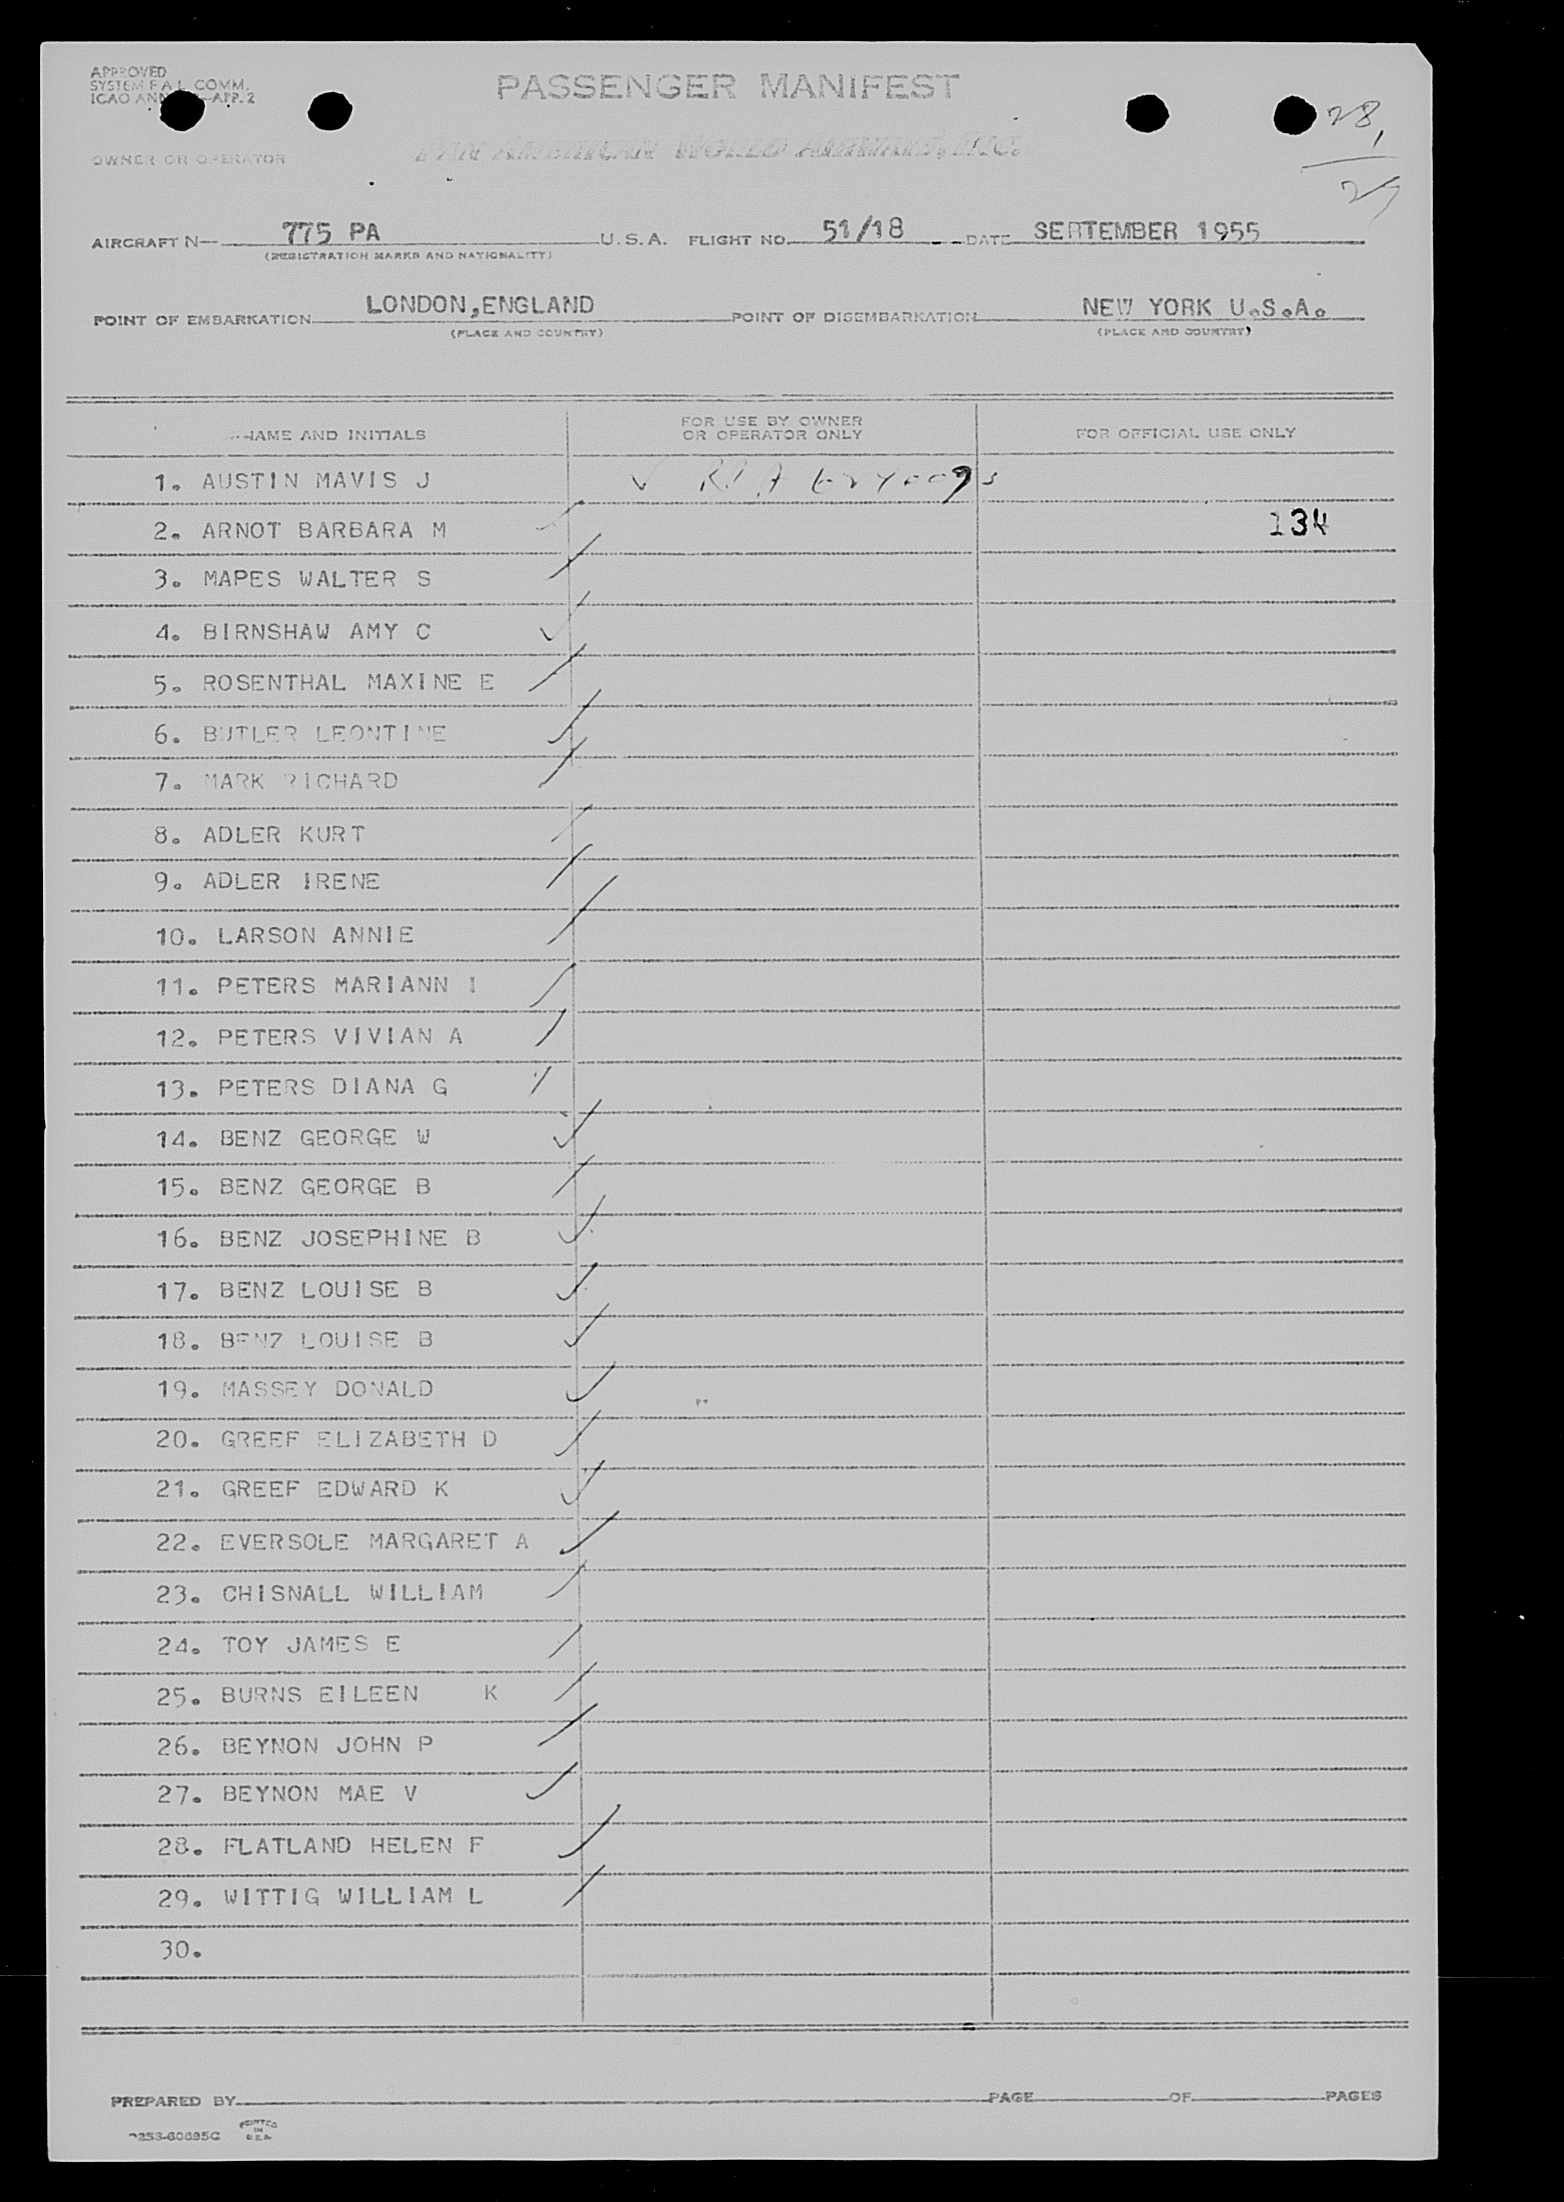 APPROVED
SYSTEM F.A.L. COMM.
ICAO APP. 2
PASSENGER MANIFEST
28,
OWNER OR OPERATOR
PAN AMERICAN WORLD AIRWAYS, INC.
AIRCRAFT N— 775 PA U.S.A. FLIGHT NO. 51/18 DATE SEPTEMBER 1955
(REGISTRATION MARKS AND NATIONALITY)
POINT OF EMBARKATION LONDON,ENGLAND POINT OF DISEMBARKATION NEW YORK U.S.A.
(PLACE AND COUNTRY) (PLACE AND COUNTRY)
NAME AND INITIALS FOR USE BY OWNER OR OPERATOR ONLY FOR OFFICIAL USE ONLY
1. AUSTIN MAVIS J
2. ARNOT BARBARA M 134
3. MAPES WALTER S
4. BIRNSHAW AMY C
5. ROSENTHAL MAXINE E
6. BUTLER LEONTINE
7. MARK RICHARD
8. ADLER KURT
9. ADLER IRENE
10. LARSON ANNIE
11. PETERS MARIANN I
12. PETERS VIVIAN A
13. PETERS DIANA G
14. BENZ GEORGE W
15. BENZ GEORGE B
16. BENZ JOSEPHINE B
17. BENZ LOUISE B
18. BENZ LOUISE B
19. MASSEY DONALD
20. GREEF ELIZABETH D
21. GREEF EDWARD K
22. EVERSOLE MARGARET A
23. CHISNALL WILLIAM
24. TOY JAMES E
25. BURNS EILEEN K
26. BEYNON JOHN P
27. BEYNON MAE V
28. FLATLAND HELEN F
29. WITTIG WILLIAM L
30.
PREPARED BY PAGE OF PAGES
PRINTED
IN
U.S.A.